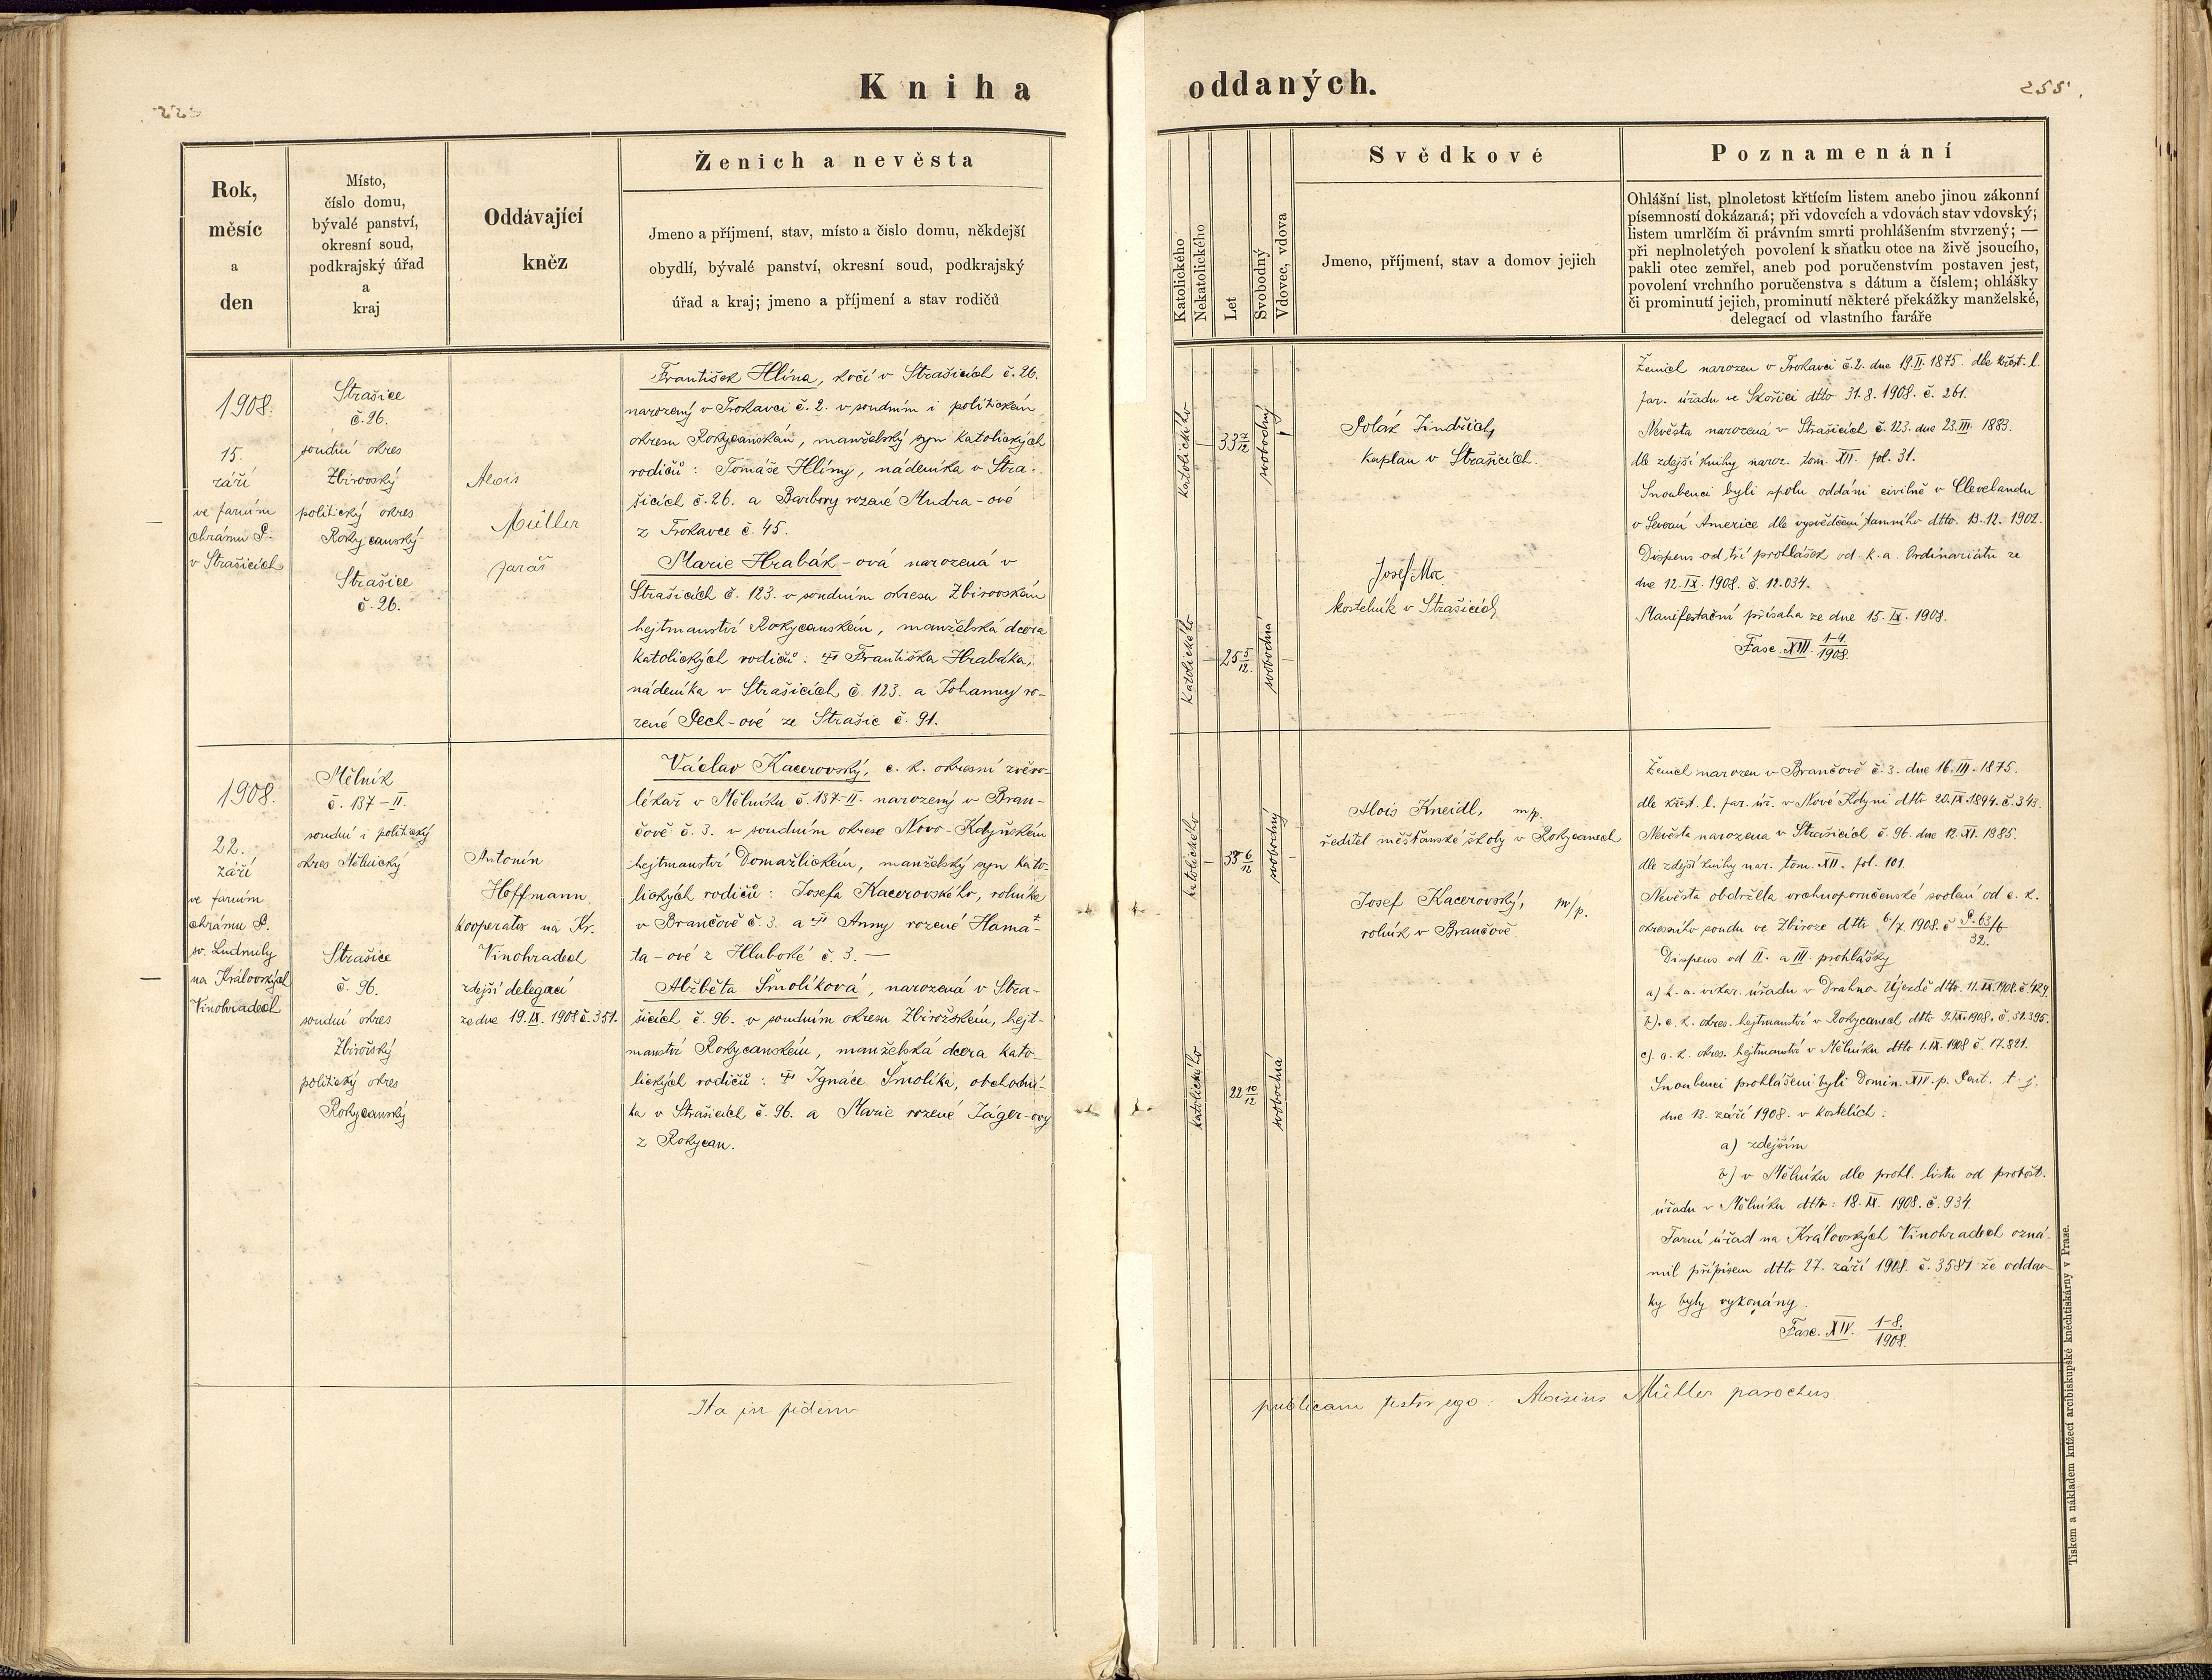 Kniha oddaných.
255.
Rok,
měsíc
a
den
Místo,
číslo domu,
bývalé panství,
okresní soud,
podkrajský úřad
a
kraj
Oddávající
kněz
Ženich a nevěsta
Jmeno a příjmení, stav, místo a číslo domu, někdejší
obydlí, bývalé panství, okresní soud, podkrajský
úřad a kraj; jmeno a příjmení a stav rodičů
Katolického
Nekatolického
Let
Svobodný
Vdovec, vdova
Svědkové
Jmeno, příjmení, stav a domov jejich
Poznamenání
Ohlášní list, plnoletost křtícím listem anebo jinou zákonní
písemností dokázaná; při vdovcích a vdovách stav vdovský;
listem umrlčím či právním smrti prohlášením stvrzený; —
při neplnoletých povolení k sňatku otce na živě jsoucího,
pakli otec zemřel, aneb pod poručenstvím postaven jest,
povolení vrchního poručenstva s dátum a číslem; ohlášky
či prominutí jejich, prominutí některé překážky manželské,
delegací od vlastního faráře
1908.
15.
září
ve farním
chrámu P.
v Strašicích
Strašice
č. 26.
soudní okres
Zbirovský
politický okres
Rokycanský
Strašice
č. 26.
Alois
Müller
farář
František Hlína, kočí v Strašicích č. 26.
narozený v Trokavci č. 2. v soudním i politickém
okresu Rokycanském, manželský syn katolických
rodičů: Tomáše Hlíny, nádeníka v Stra-
šicích č. 26. a Barbory rozené Mudra-ové
z Trokavce č. 45.
Marie Hrabák-ová narozená v
Strašicích č. 123. v soudním okresu Zbirovském
hejtmanství Rokycanském, manželská dcera
katolických rodičů: † Františka Hrabáka,
nádeníka v Strašicích č. 123. a Johanny ro-
zené Pech-ové ze Strašic č. 91.
katolického
33 7/12
svobodný
katolického
25 5/12
svobodná
Polák Jindřich,
kaplan v Strašicích.
Josef Moc
kostelník v Strašicích
Ženich narozen v Trokavci č. 2. dne 19.II.1875. dle křest. l.
far. úřadu ve Skořici dtto 31.8.1908. č. 261.
Nevěsta narozená v Strašicích č. 123. dne 23.III. 1883.
dle zdejší knihy naroz. tom. XII. fol. 31.
Snoubenci byli spolu oddáni civilně v Clevelandu
v Severní Americe dle vysvědčení tamního dtto. 13.12.1902.
Dispens od tří prohlášek od k. a. Ordinariátu ze
dne 12.IX.1908. č. 12.034.
Manifestační přísaha ze dne 15.IX.1908.
Fasc. XIII. 1-4/1908.
1908.
22.
září
ve farním
chrámu P.
sv. Ludmily
na Královských
Vinohradech
Mělník
č. 137-II.
soudní i politický
okres Mělnický
Strašice
č. 96.
soudní okres
Zbirožský
politický okres
Rokycanský
Antonín
Hoffmann,
kooperator na Kr.
Vinohradech
zdejší delegací
ze dne 19.IX.1908 č. 351.
Václav Kacerovský, c. k. okresní zvěro-
lékař v Mělníku č. 137-II. narozený v Bran-
čově č. 3. v soudním okrese Novo-Kdyňském
hejtmanství Domažlickém, manželský syn kato-
lických rodičů: Josefa Kacerovského, rolníka
v Brančově č. 3. a † Anny rozené Hama-
ta-ové z Hluboké č. 3. —
Alžběta Šmolíková, narozená v Stra-
šicích č. 96. v soudním okresu Zbirožském, hejt-
manství Rokycanském, manželská dcera kato-
lických rodičů: † Ignáce Šmolíka, obchodní-
ka v Strašicích č. 96. a Marie rozené Jäger-ovy
z Rokycan.
katolického
33 6/12
svobodný
katolického
22 10/12
svobodná
Alois Kneidl, m/p.
ředitel měšťanské školy v Rokycanech
Josef Kacerovský, m/p.
rolník v Brančově.
Ženich narozen v Brančově č. 3. dne 16.III.1875.
dle křest. l. far. úř. v Nové Kdyni dtto 20.IX.1894. č. 343.
Nevěsta narozena v Strašicích č. 96. dne 12.XI.1885.
dle zdejší knihy nar. tom. XII. fol. 101.
Nevěsta obdržela vrchnoporučenské svolení od c. k.
okresního soudu ve Zbiroze dtto 6/7. 1908. č. P. 63/6
32.
Dispens od II. a III. prohlášky
a) k. a. vikar. úřadu v Drahno-Újezdě dtto. 11.IX.1908. č. 429.
b). c. k. okres. hejtmanství v Rokycanech dtto 9.IX.1908. č. 31.395.
c). c. k. okres. hejtmanství v Mělníku dtto 1.IX.1908 č. 17.821.
Snoubenci prohlášeni byli Domin. XIV. p. Pent. t. j.
dne 13. září 1908. v kostelích:
a) zdejším
b) v Mělníku dle prohl. listu od probošt.
úřadu v Mělníku dtto: 18.IX. 1908. č. 934.
Farní úřad na Královských Vinohradech ozná-
mil přípisem dtto 27. září 1908. č. 3581 že oddav-
ky byly vykonány.
Fasc. XIV. 1-8./1908.
Ita in fidem publicam testor ego: Aloisius Müller parochus
Tiskem a nákladem knížecí arcibiskupské knihtiskárny v Praze.